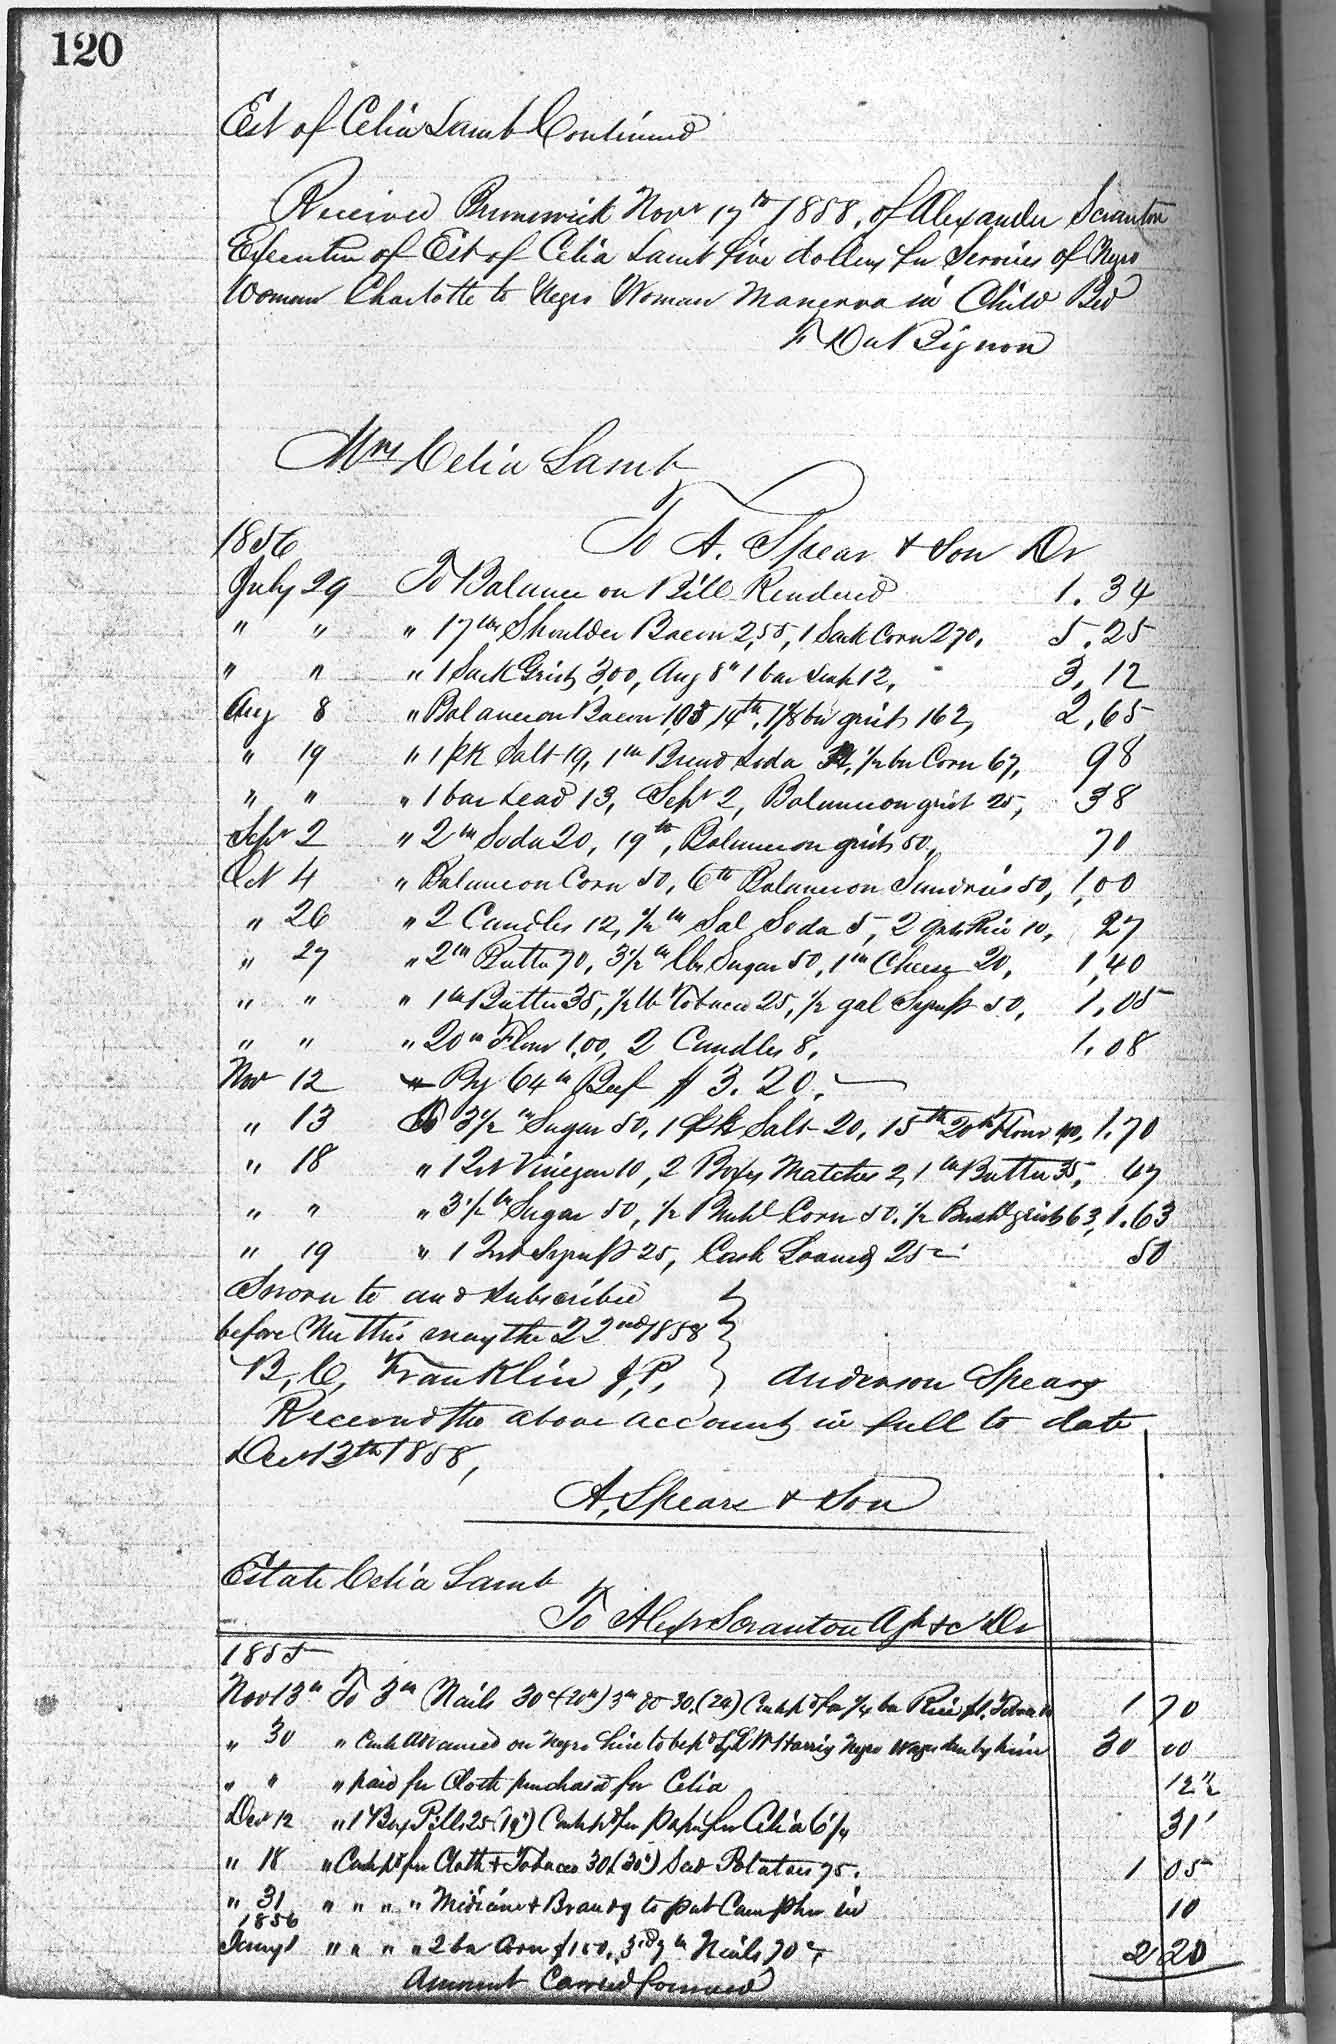 120
Est of Celia Lamb Continued
Received Brunswick Novr 17th 1858, of Alexander Scranton
Executor of Est of Celia Lamb five dollars for Services of Negro
Woman Charlotte to Negro Woman Manerva in Child Bed
F DuBignon
Mrs Celia Lamb
To A. Spear & Son Dr
1856
July 29 To Balance on Bill Rendered 1.34
" " " 17 lbs Shoulder Bacon 2,55, 1 Sack Corn 270, 5.25
" " " 1 Sack Grist 3,00, Aug 8" 1 bar soap 12, 3,12
Aug 8 " Balance on Bacon 1,03, 14th, 1 1/8 bu grits 162, 2,65
" 19 " 1 pk Salt 19, 1 lb Bread Soda , 1/2 bu Corn 67, 98
" " " 1 bar Lead 13, Sept 2, Balance on grist 25, 38
Sept 2 " 2 lb Soda 20, 19th, Balance on grits 50, 70
Oct 4 " Balance on Corn 50, 6th Balance on Sundries 50, 1,00
" 26 " 2 Candles 12, 1/2 lb Sal Soda 5, 2 qts Rice 10, 27
" 27 " 2 lb Butter 70, 3 1/2 lbs Sugar 50, 1 lb Cheese 20, 1,40
" " " 1 lb Butter 35, 1/2 lb Tobacco 25, 1/2 gal Syrup 50, 1.05
" " " 20 lb Flour 1,00, 2 Candles 8, 1.08
Nov 12 " By 64 lb Beef $3.20.
" 13 To 3 1/2 lb Sugar 50, 1 pk Salt 20, 15th 20 lb Flour , 1.70
" 18 " 1 Qt Vinegar 10, 2 Boxes Matches 2, 1 lb Butter 35, 47
" " " 3 1/2 lb Sugar 50, 1/2 Bushl Corn 50. 1/2 Bushl grits 63, 1.63
" 19 " 1 Qt Syrup 25, Cash Loaned 25 50
Sworn to and subscribed
before Me this may the 22nd 1858
B, C, Franklin J,P, Anderson Spears
Received the above account in full to date
Dec 13th 1858,
A, Spears & Son
Estate Celia Lamb
To Alexr Scranton Agt &c Dr
1855
Nov 13th To 3 lb Nails 30 (20th) 3 lb do 30, (24) Cash pd for 1/4 bu Rice 1 70
" 30 " Cash advanced on Negro hire to be pd by W Harris Negro Wages due by him 30 00
" " " paid for Cloth purchased for Celia 12 1/2
Dec 12 " 1 Box Pills 25 Cash pd for paper for Celia 6 1/4 31
" 18 " Cash pd for Cloth & Tobacco 30 Seed Potatoes 75. 1 05
" 31 " " " " Medicine & Brandy to put Camphor in 10
1856
Jany 1 " " " " 2 bu Corn $1 50, 3rd 7 lb Nails 70 2 20
Amount Carried forward